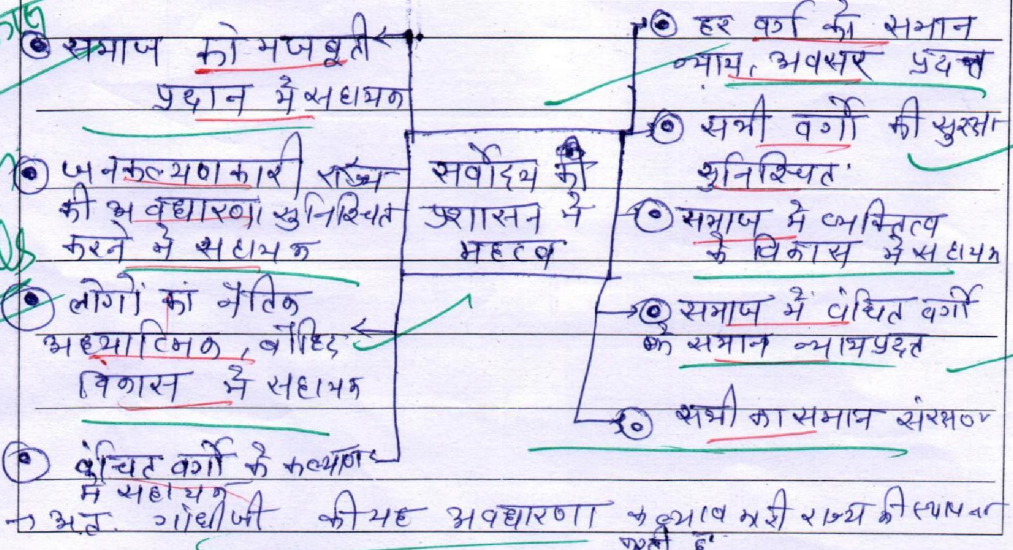 समाज को मजबूती
प्रदान में सहायक
जनकल्याणकारी राज्य
की अवधारणा सुनिश्चित
करने में सहायक
लोगों का नैतिक
अध्यात्मिक, बौद्धि
विकास में सहायक
वंचित वर्गों के कल्याण
में सहायक
सर्वोदय की
प्रशासन में
महत्व
हर वर्ग को समान
न्याय, अवसर प्रदत्त
सभी वर्गों की सुरक्षा
सुनिश्चित
समाज में व्यक्तित्व
के विकास में सहायक
समाज में वंचित वर्गों
के समान न्याय प्रदत
सभी का समान संरक्षण
→ अतः गांधीजी की यह अवधारणा कल्याणकारी राज्य की स्थापना
करती है